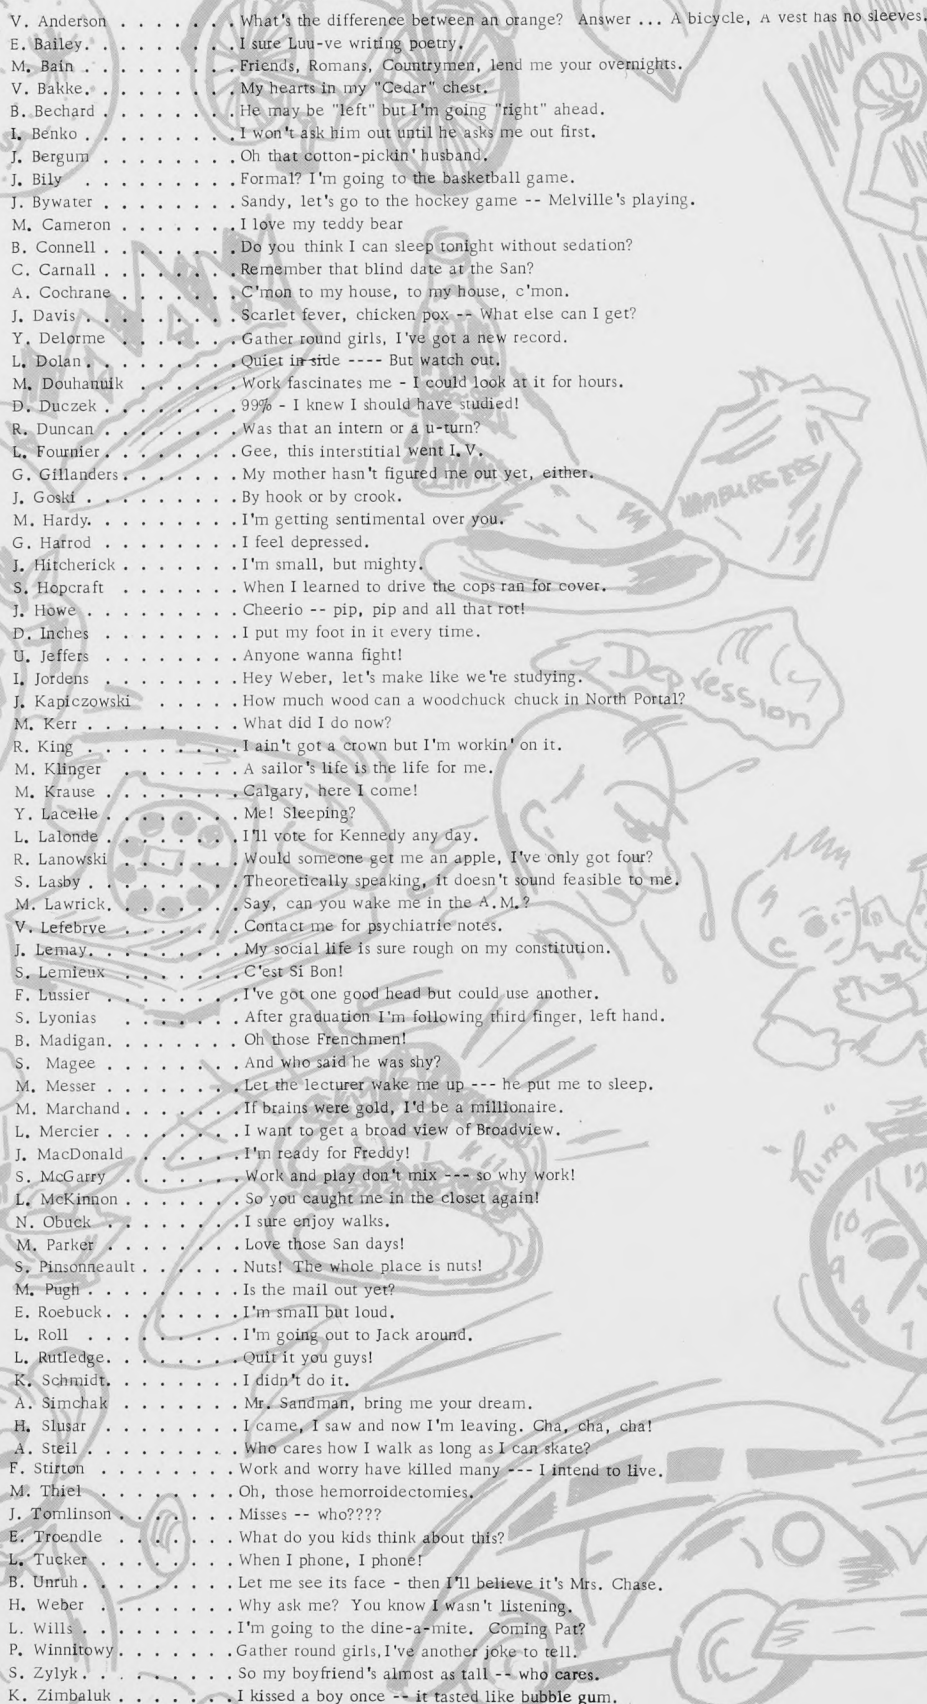 V. Anderson . . . . . . . What's the difference between an orange? Answer ... A bicycle, A vest has no sleeves.
E. Bailey. . . . . . . . . I sure Luu-ve writing poetry.
M. Bain . . . . . . . . . Friends, Romans, Countrymen, lend me your overnights.
V. Bakke. . . . . . . . . My hearts in my "Cedar" chest.
B. Bechard . . . . . . . . He may be "left" but I'm going "right" ahead.
I. Benko . . . . . . . . . I won't ask him out until he asks me out first.
J. Bergum . . . . . . . . Oh that cotton-pickin' husband.
J. Bily . . . . . . . . . Formal? I'm going to the basketball game.
J. Bywater . . . . . . . . Sandy, let's go to the hockey game -- Melville's playing.
M. Cameron . . . . . . . I love my teddy bear
B. Connell . . . . . . . . Do you think I can sleep tonight without sedation?
C. Carnall . . . . . . . . Remember that blind date at the San?
A. Cochrane . . . . . . . C'mon to my house, to my house, c'mon.
J. Davis . . . . . . . . . Scarlet fever, chicken pox -- What else can I get?
Y. Delorme . . . . . . . Gather round girls, I've got a new record.
L. Dolan . . . . . . . . . Quiet in-side ---- But watch out.
M. Douhanuik . . . . . . Work fascinates me - I could look at it for hours.
D. Duczek . . . . . . . . 99% - I knew I should have studied!
R. Duncan . . . . . . . . Was that an intern or a u-turn?
L. Fournier . . . . . . . Gee, this interstitial went I.V.
G. Gillanders . . . . . . . My mother hasn't figured me out yet, either.
J. Goski . . . . . . . . . By hook or by crook.
M. Hardy. . . . . . . . . I'm getting sentimental over you.
G. Harrod . . . . . . . . I feel depressed.
J. Hitcherick . . . . . . . I'm small, but mighty.
S. Hopcraft . . . . . . . When I learned to drive the cops ran for cover.
J. Howe . . . . . . . . . Cheerio -- pip, pip and all that rot!
D. Inches . . . . . . . . I put my foot in it every time.
U. Jeffers . . . . . . . . Anyone wanna fight!
I. Jordens . . . . . . . . Hey Weber, let's make like we're studying.
J. Kapiczowski . . . . . How much wood can a woodchuck chuck in North Portal?
M. Kerr . . . . . . . . . What did I do now?
R. King . . . . . . . . . I ain't got a crown but I'm workin' on it.
M. Klinger . . . . . . . A sailor's life is the life for me.
M. Krause . . . . . . . . Calgary, here I come!
Y. Lacelle . . . . . . . . Me! Sleeping?
L. Lalonde . . . . . . . . I'll vote for Kennedy any day.
R. Lanowski . . . . . . . Would someone get me an apple, I've only got four?
S. Lasby . . . . . . . . . Theoretically speaking, it doesn't sound feasible to me.
M. Lawrick. . . . . . . . Say, can you wake me in the A.M.?
V. Lefebrve . . . . . . . Contact me for psychiatric notes.
J. Lemay. . . . . . . . . My social life is sure rough on my constitution.
S. Lemieux . . . . . . . C'est Si Bon!
F. Lussier . . . . . . . . I've got one good head but could use another.
S. Lyonias . . . . . . . After graduation I'm following third finger, left hand.
B. Madigan. . . . . . . . Oh those Frenchmen!
S. Magee . . . . . . . . And who said he was shy?
M. Messer . . . . . . . . Let the lecturer wake me up --- he put me to sleep.
M. Marchand . . . . . . . If brains were gold, I'd be a millionaire.
L. Mercier . . . . . . . . I want to get a broad view of Broadview.
J. MacDonald . . . . . . I'm ready for Freddy!
S. McGarry . . . . . . . Work and play don't mix --- so why work!
L. McKinnon . . . . . . . So you caught me in the closet again!
N. Obuck . . . . . . . . I sure enjoy walks.
M. Parker . . . . . . . . Love those San days!
S. Pinsonneault . . . . . . Nuts! The whole place is nuts!
M. Pugh . . . . . . . . . Is the mail out yet?
E. Roebuck . . . . . . . . I'm small but loud.
L. Roll . . . . . . . . . I'm going out to Jack around.
L. Rutledge. . . . . . . . Quit it you guys!
K. Schmidt. . . . . . . . I didn't do it.
A. Simchak . . . . . . . Mr. Sandman, bring me your dream.
H. Slusar . . . . . . . . I came, I saw and now I'm leaving. Cha, cha, cha!
A. Steil . . . . . . . . . Who cares how I walk as long as I can skate?
F. Stirton . . . . . . . . Work and worry have killed many --- I intend to live.
M. Thiel . . . . . . . . Oh, those hemorroidectomies.
J. Tomlinson . . . . . . . Misses -- who????
E. Troendle . . . . . . . What do you kids think about this?
L. Tucker . . . . . . . . When I phone, I phone!
B. Unruh . . . . . . . . . Let me see its face - then I'll believe it's Mrs. Chase.
H. Weber . . . . . . . . Why ask me? You know I wasn't listening.
L. Wills . . . . . . . . . I'm going to the dine-a-mite. Coming Pat?
P. Winnitowy . . . . . . . Gather round girls, I've another joke to tell.
S. Zylyk . . . . . . . . . So my boyfriend's almost as tall -- who cares.
K. Zimbaluk . . . . . . . I kissed a boy once -- it tasted like bubble gum.
HAMBURGERS
Depression
12
1
10
9
8
7